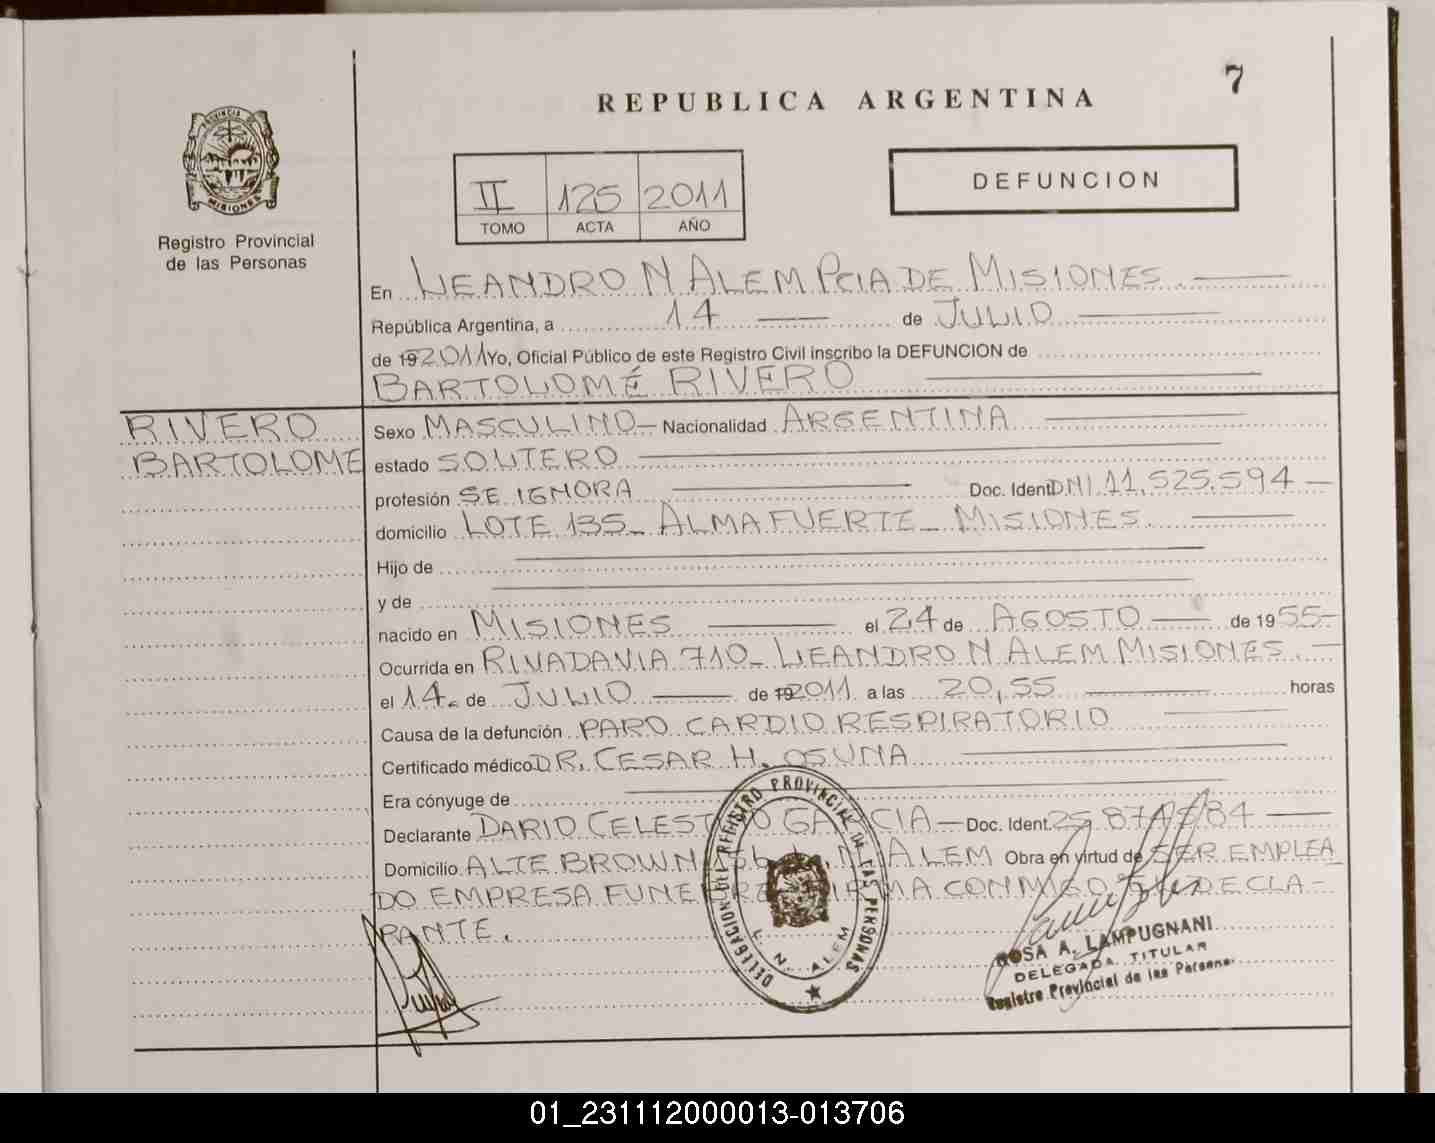 7
REPUBLICA ARGENTINA
PROVINCIA DE MISIONES
Registro Provincial
de las Personas
II 125 2011
TOMO ACTA AÑO
DEFUNCION
En LEANDRO N ALEM PCIA DE MISIONES.
República Argentina, a 14 de JULIO
de 192011 Yo, Oficial Público de este Registro Civil inscribo la DEFUNCION de
BARTOLOMÉ RIVERO
RIVERO
BARTOLOME
Sexo MASCULINO Nacionalidad ARGENTINA
estado SOLTERO
profesión SE IGNORA Doc. Ident. DNI 11.525.594
domicilio LOTE 135 - ALMAFUERTE - MISIONES.
Hijo de
y de
nacido en MISIONES el 24 de AGOSTO de 1955-
Ocurrida en RIVADAVIA 710 - LEANDRO N ALEM MISIONES.
el 14. de JULIO de 192011. a las 20,55 horas
Causa de la defunción PARO CARDIO RESPIRATORIO
Certificado médico DR. CESAR H. OSUNA
Era cónyuge de
Declarante DARIO CELESTINO GARCIA - Doc. Ident.
Domicilio ALTE BROWN N. ALEM Obra en virtud de SER EMPLEA
DO EMPRESA FUNEBRE FIRMA CONMIGO DECLA-
RANTE.
DELEGACION DEL REGISTRO PROVINCIAL DE LAS PERSONAS
L. N. ALEM
ROSA A. LAMPUGNANI
DELEGADA TITULAR
Registro Provincial de las Personas
01_231112000013-013706